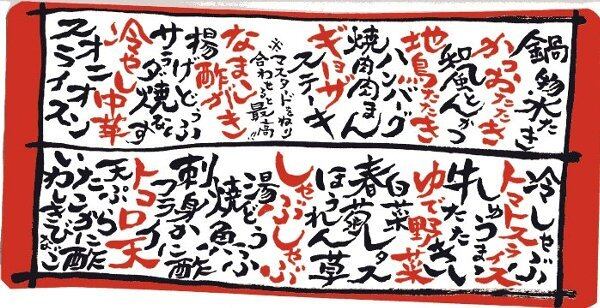 鍋物水たき
かつおたたき
和風とんかつ
地鳥たたき
ハンバーグ
焼肉肉まん
ギョーザ
ステーキ
※マスタードをねり
合わせると最高!!
なまこ酢がき
揚げどうふ
サラダ焼なす
冷やし中華
オニオン
スライス
冷しゃぶ
トマトスライス
しゅうまい
牛たたき
ゆで野菜
白菜
春菊レタス
ほうれん草
しゃぶしゃぶ
湯どうふ
焼魚
刺身かに酢
フライ
トコロ天
天ぷら
たこかに酢
いわしきびなご